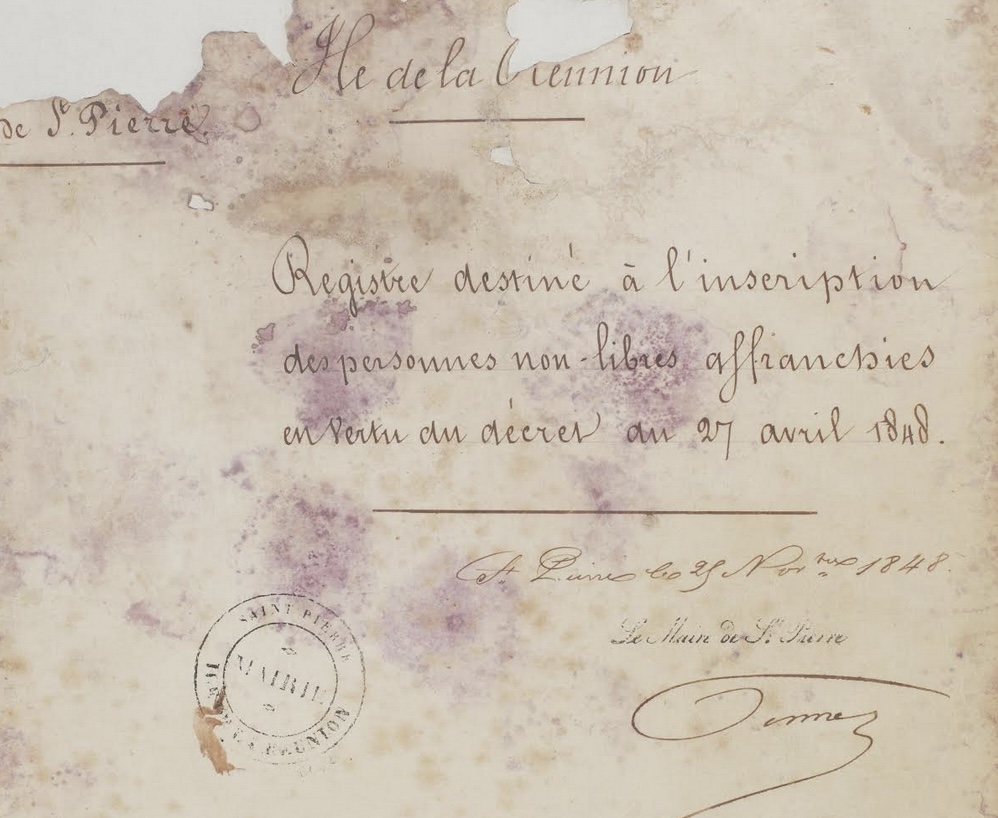 Ile de la Réunion
de St. Pierre.
Registre destiné à l'inscription
des personnes non-libres affranchies
en vertu du décret du 27 avril 1848.
St Pierre le 25 Novbre 1848.
Le Maire de St Pierre
SAINT PIERRE
MAIRIE
ILE DE LA RÉUNION